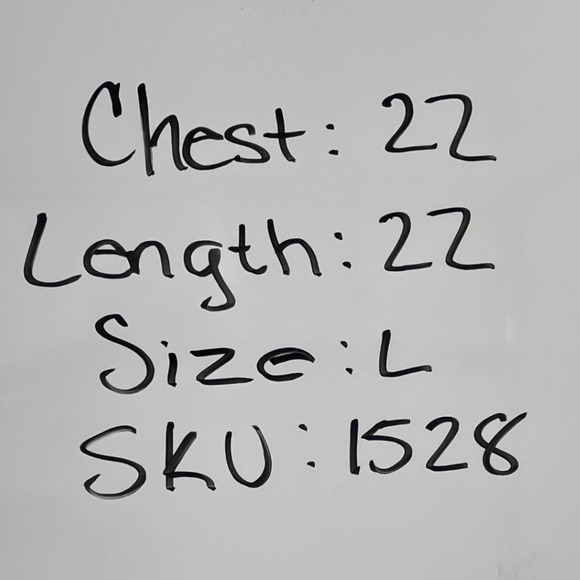 Chest: 22
Length: 22
Size: L
SKU: 1528